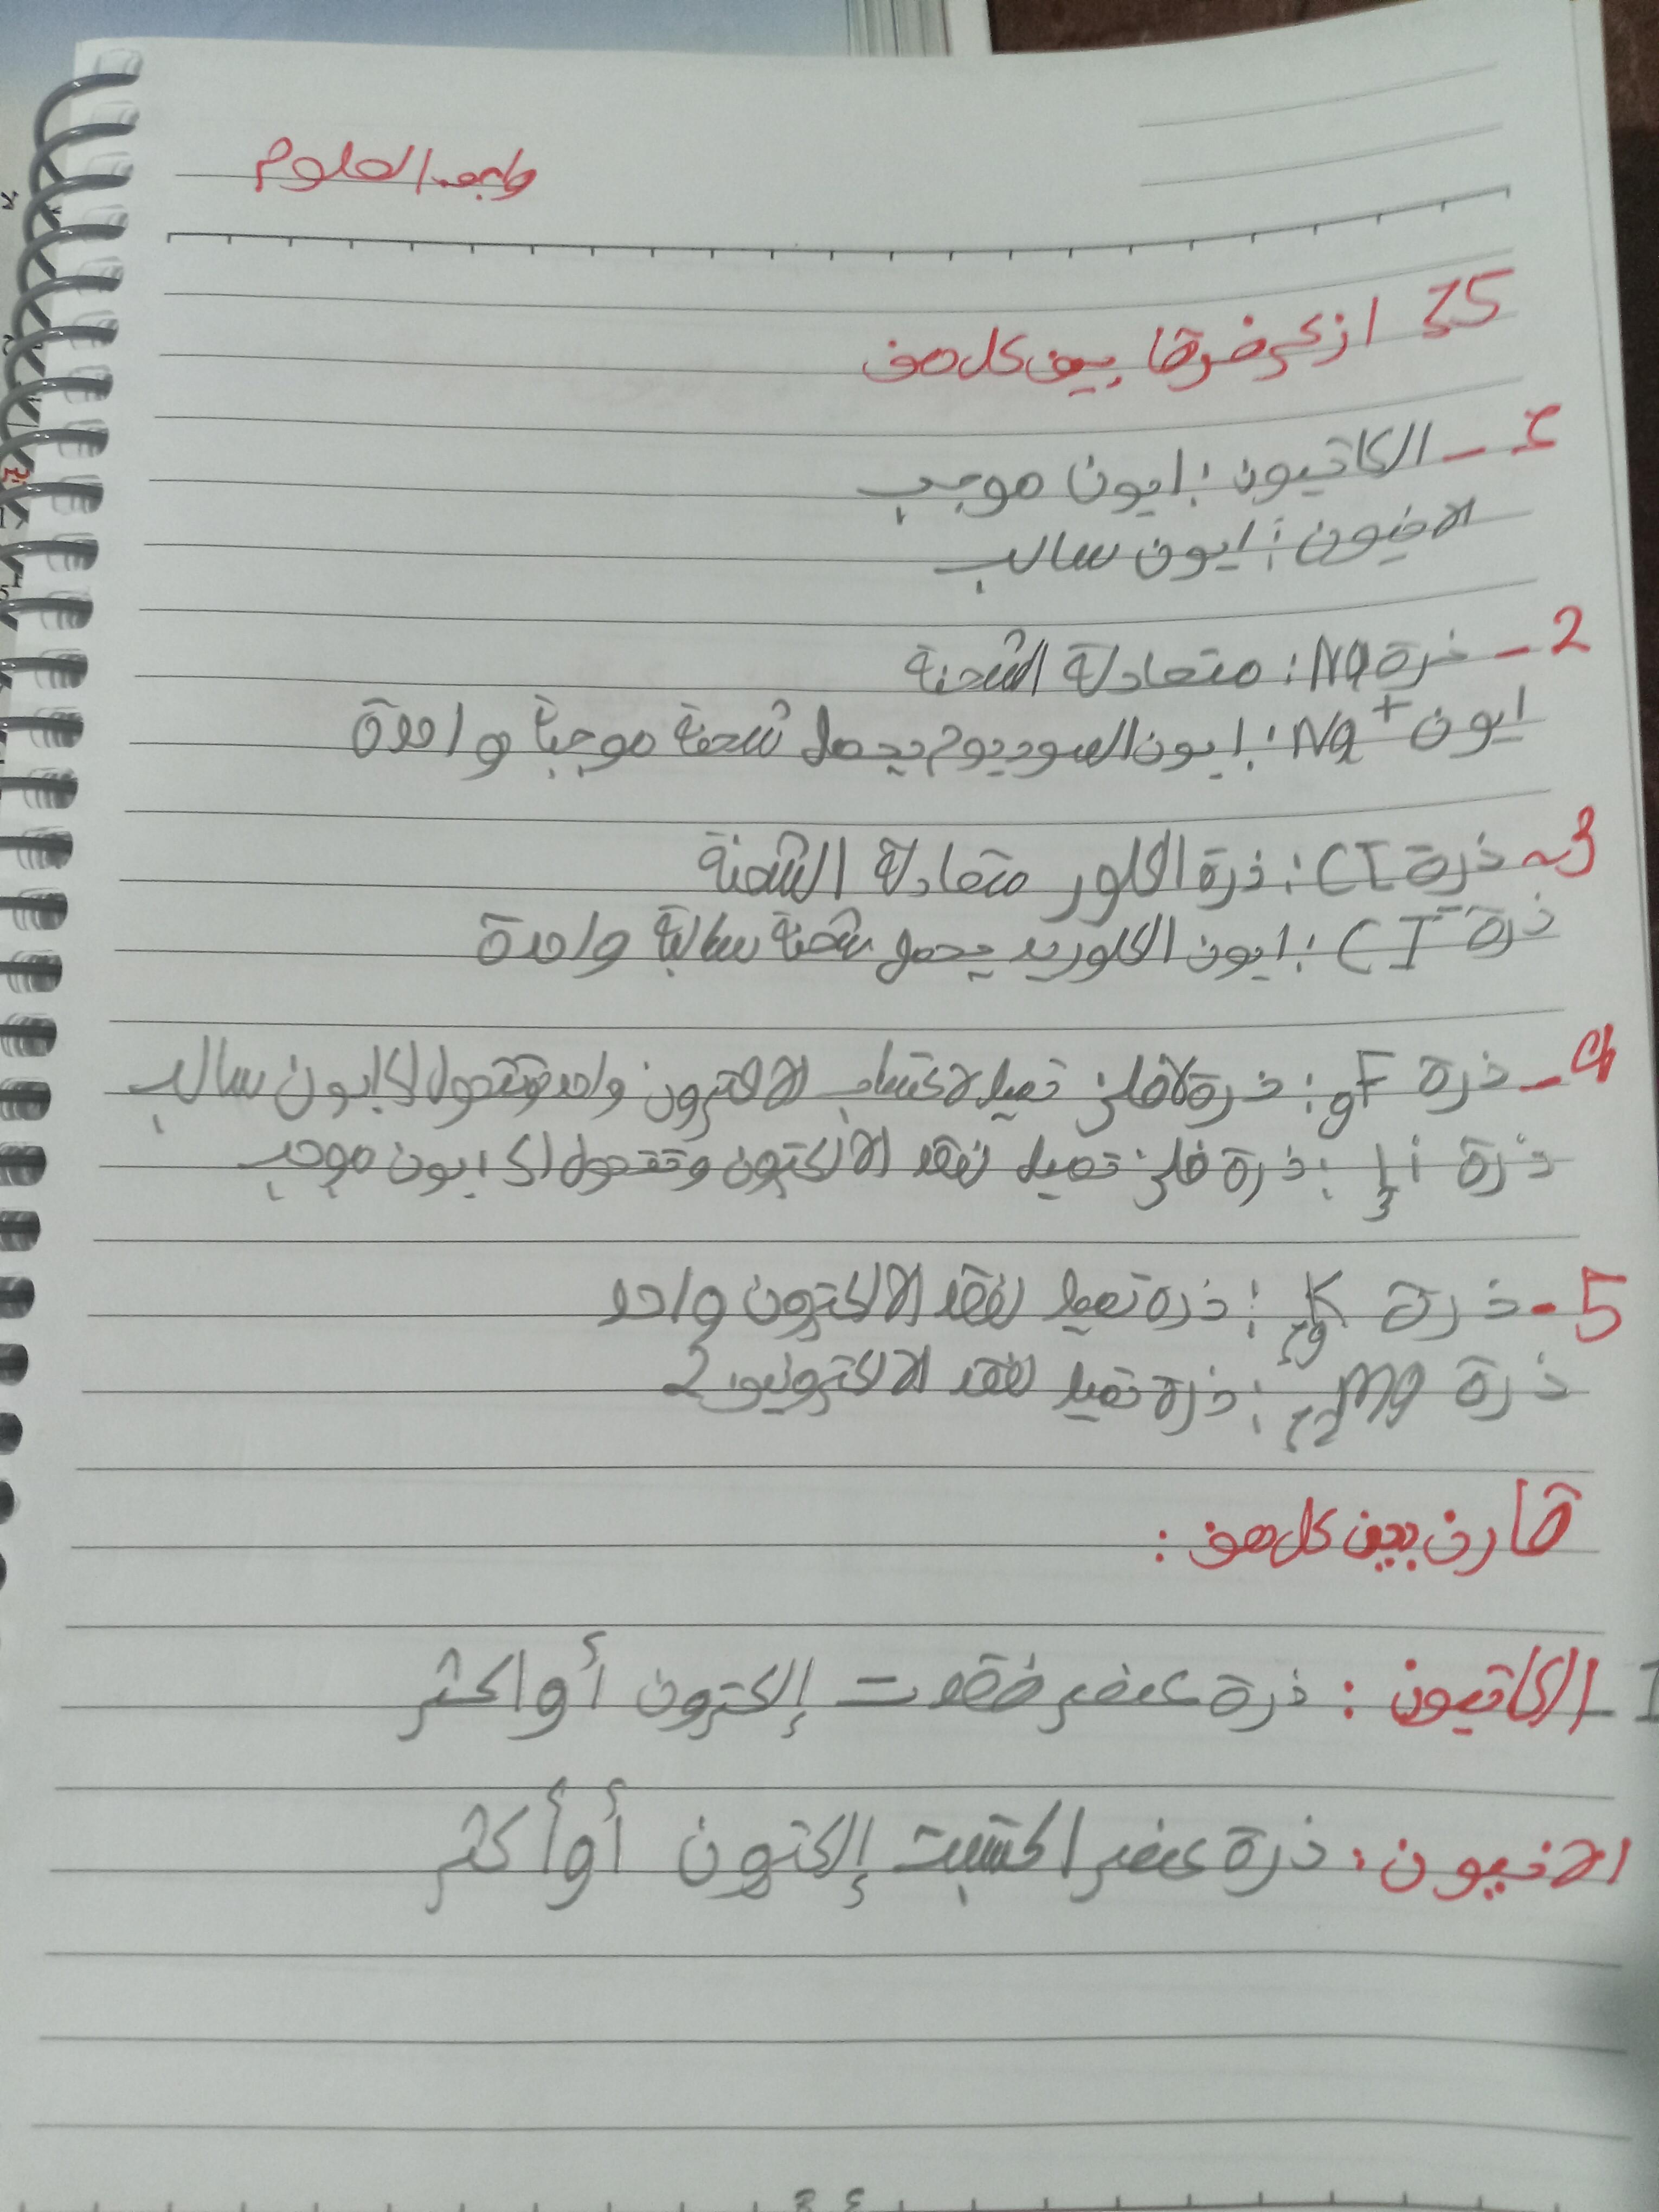 واجب العلوم
35 اذكر فرقا بين كل من
1 - الكاتيون : ايون موجب
الانيون : ايون سالب
2 - ذرة Na : متعادلة الشحنة
ايون Na+ : ايون الصوديوم يحمل شحنة موجبة واحدة
3 - ذرة CI : ذرة الكلور متعادلة الشحنة
ذرة CI- : ايون الكلوريد يحمل شحنة سالبة واحدة
4 - ذرة 9F : ذرة لافلز تميل لاكتساب الالكترون واحد وتتحول الى ايون سالب
ذرة 3Li : ذرة فلز تميل لفقد الالكترون وتتحول الى ايون موجب
5 - ذرة 19K : ذرة تميل لفقد الالكترون واحد
ذرة 12Mg : ذرة تميل لفقد الالكترونيين 2
قارن بين كل من :
1 - الكاتيون : ذرة عنصر فقدت إلكترون أو اكثر
الانيون : ذرة عنصر اكتسبت إلكترون أو أكثر